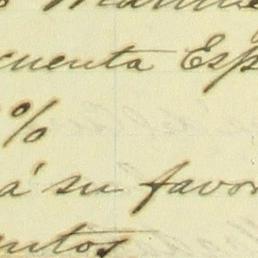 cuenta Esp
%
á su favor
entos